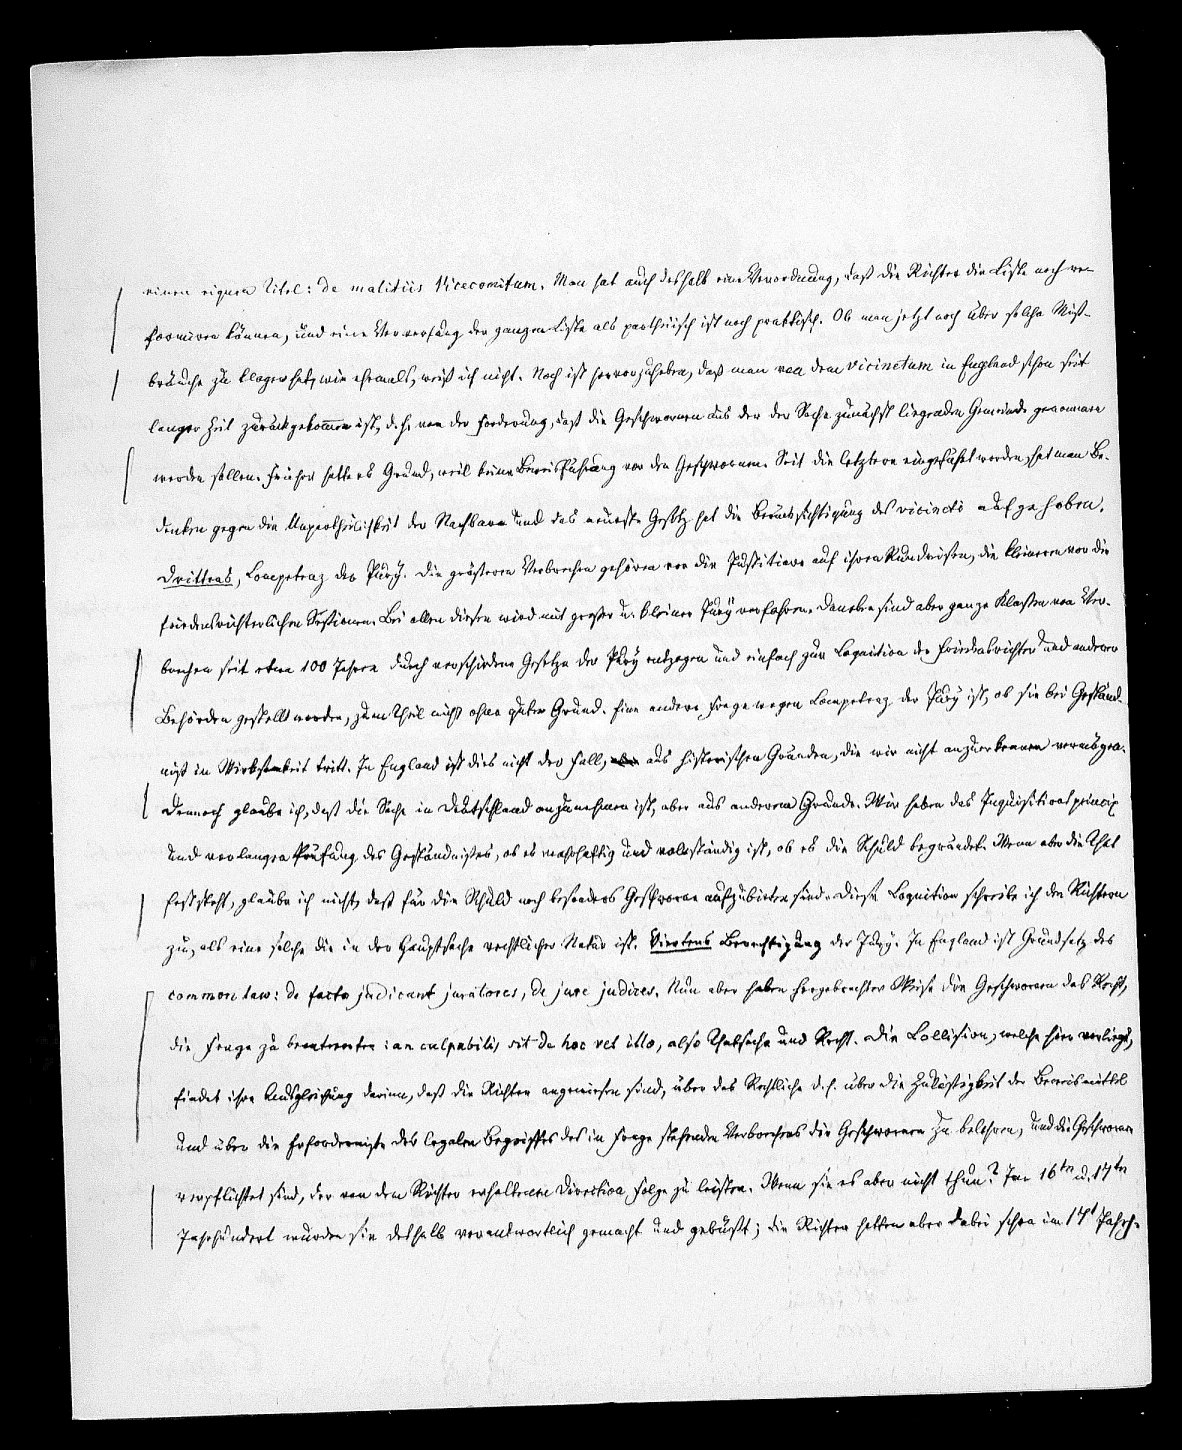 einen eignen Titel: de malitiis Vicecomitum. Man hat auch deshalb eine Verordnung, daß die Richter die Liste noch re-
formiren können, und eine Verwerfung der ganzen Liste als partheiisch ist noch praktisch. Ob man jetzt noch über solche Miß-
bräuche zu klagen hat, wie ehemals, weiß ich nicht. Noch ist hervorzuheben, daß man von dem vicinetum in England schon seit
langer Zeit zurückgekommen ist, d.h. von der Forderung, daß die Geschwornen aus der der Sache zunächst liegenden Gemeinde genommen
werden sollen. Früher hatte es Grund, weil keine Beweisführung vor den Geschwornen. Seit die letztere eingeführt worden, hat man Be-
denken gegen die Unpartheilichkeit der Nachbarn und das neueste Gesetz hat die Berücksichtigung des vicineti aufgehoben.
Drittens, Competenz der Jury. Die größeren Verbrechen gehören vor die Justitiare auf ihren Rundreisen, die kleineren vor die
friedensrichterlichen Sessionen. Bei allen diesen wird mit großer u. kleiner Jury verfahren. Daneben sind aber ganze Klassen von Ver-
brechen seit etwa 100 Jahren durch verschiedene Gesetze der Jury entzogen und einfach zur Cognition der Friedensrichter und anderer
Behörden gestellt worden, zum Theil nicht ohne guten Grund. Eine andere Frage wegen Competenz der Jury ist, ob sie bei Geständ-
niß in Wirksamkeit tritt. In England ist dies nicht der Fall, aus historischen Gründen, die wir nicht anzuerkennen vermögen.
Dennoch glaube ich, daß die Sache in Deutschland anzunehmen ist, aber aus anderem Grunde. Wir haben das Inquisitionsprincip
und verlangen Prüfung des Geständnißes, ob es wahrhaftig und vollständig ist, ob es die Schuld begründet. Wenn aber die That
feststeht, glaube ich nicht, daß für die Schuld noch besonders Geschworne aufzubieten sind. Diese Cognition schreibe ich den Richtern
zu, als eine solche die in der Hauptsache rechtlicher Natur ist. Viertens Berechtigung der Jury. In England ist Grundsatz des
common law: de facto judicant juratores, de jure judices. Nun aber haben hergebrachter Weise die Geschwornen das Recht,
die Frage zu beantworten: an culpabilis sit de hoc vel illo, also Thatsache und Recht. Die Collision, welche hier vorliegt,
findet ihre Ausgleichung darin, daß die Richter angewiesen sind, über das Rechtliche d.h. über die Zulässigkeit der Beweismittel
und über die Erfordernisse des legalen Begriffes des in Frage stehenden Verbrechens die Geschwornen zu belehren, und die Geschwornen
verpflichtet sind, der von dem Richter erhaltenen Direction Folge zu leisten. Wenn sie es aber nicht thun? Im 16ten u. 17ten
Jahrhundert wurden sie deshalb verantwortlich gemacht und gebüßt; die Richter hatten aber dabei schon im 17t Jahrh-